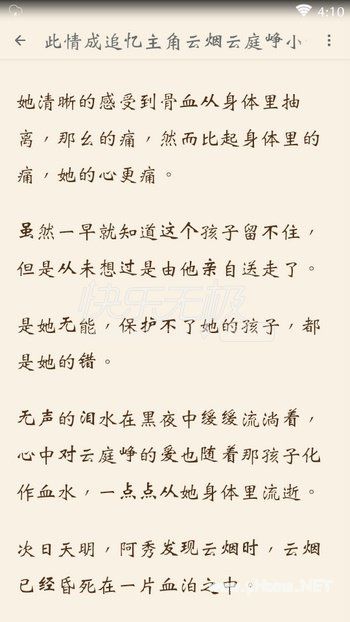 4:10
此情成追忆主角云烟云庭峥小
她清晰的感受到骨血从身体里抽
离，那幺的痛，然而比起身体里的
痛，她的心更痛。
虽然一早就知道这个孩子留不住，
但是从未想过是由他亲自送走了。
是她无能，保护不了她的孩子，都
是她的错。
无声的泪水在黑夜中缓缓流淌着，
心中对云庭峥的爱也随着那孩子化
作血水，一点点从她身体里流逝。
次日天明，阿秀发现云烟时，云烟
已经昏死在一片血泊之中。
快乐无极